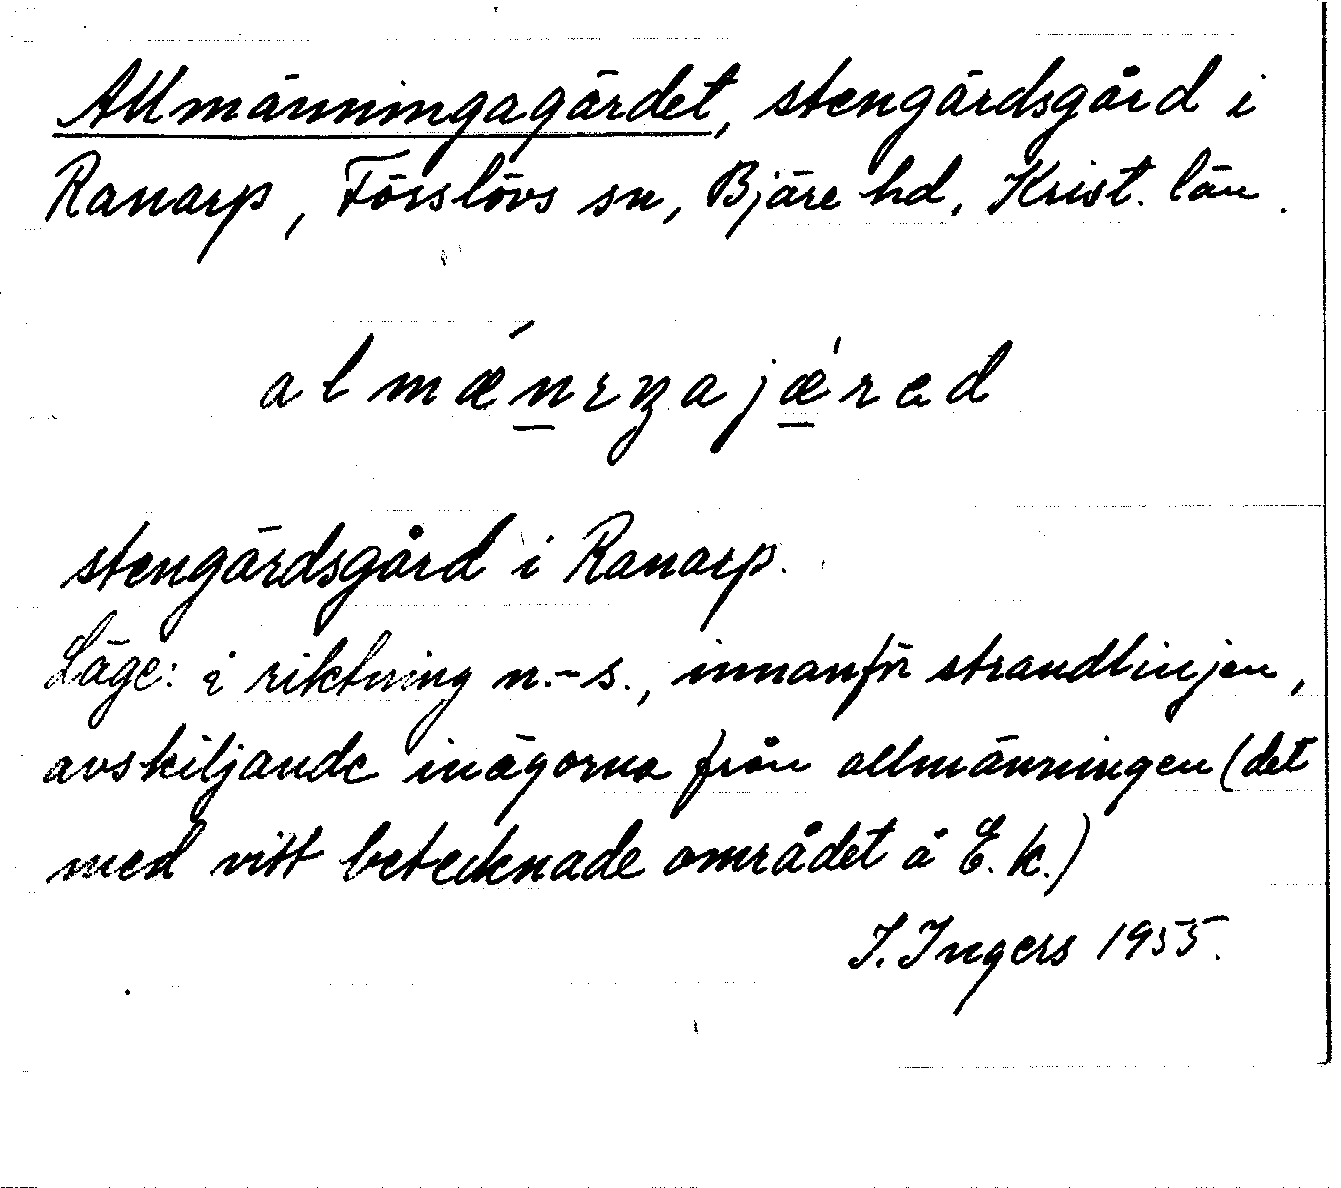 Allmänningagärdet, stengärdsgård i
Ranarp, Förslövs sn, Bjäre hd, Krist. län.
almǽnıŋajǽrəd
stengärdsgård i Ranarp.
Läge: i riktning n.-s., innanför strandlinjen,
avskiljande inägorna från allmänningen (det
med vitt betecknade området å E.k.)
I. Ingers 1955.